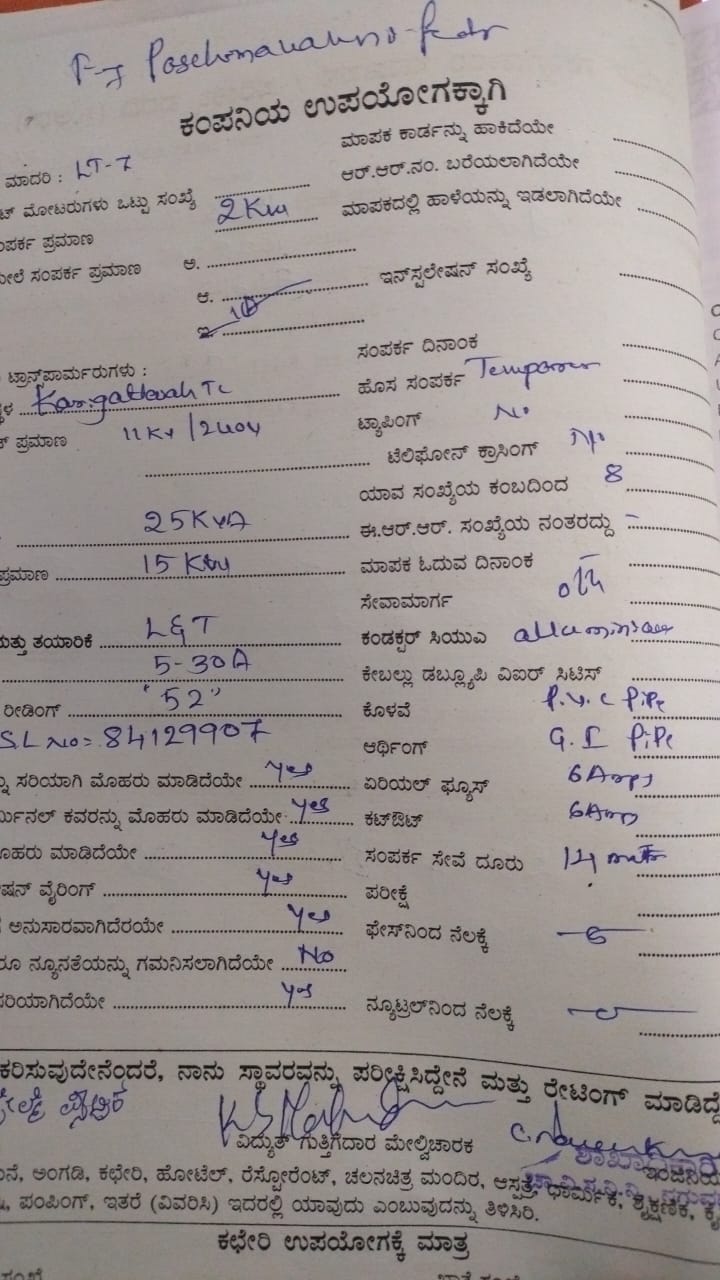 ಕಂಪನಿಯ ಉಪಯೋಗಕ್ಕಾಗಿ
ಮಾಪಕ ಕಾರ್ಡನ್ನು ಹಾಕಿದೆಯೇ
ಮಾದರಿ : LT-7
ಆರ್.ಆರ್.ನಂ. ಬರೆಯಲಾಗಿದೆಯೇ
ಮೋಟರುಗಳು ಒಟ್ಟು ಸಂಖ್ಯೆ
2Kw ಮಾಪಕದಲ್ಲಿ ಹಾಳೆಯನ್ನು ಇಡಲಾಗಿದೆಯೇ
ಪ್ರಮಾಣ
ಸಂಪರ್ಕ ಪ್ರಮಾಣ ಅ.
ಆ. ಇನ್‌ಸ್ಟಲೇಷನ್ ಸಂಖ್ಯೆ
ಇ 1Φ
ಸಂಪರ್ಕ ದಿನಾಂಕ
ಟ್ರಾನ್ಸ್‌ಫಾರ್ಮರುಗಳು :
ಹೊಸ ಸಂಪರ್ಕ
ಪ್ರಮಾಣ 11Kv/240v ಟ್ಯಾಪಿಂಗ್ No
ಟೆಲಿಫೋನ್ ಕ್ರಾಸಿಂಗ್ No
ಯಾವ ಸಂಖ್ಯೆಯ ಕಂಬದಿಂದ 8
25KVA ಈ.ಆರ್.ಆರ್. ಸಂಖ್ಯೆಯ ನಂತರದ್ದು –
ಪ್ರಮಾಣ 15 Kw ಮಾಪಕ ಓದುವ ದಿನಾಂಕ
ಸೇವಾಮಾರ್ಗ
ಮತ್ತು ತಯಾರಿಕೆ L&T ಕಂಡಕ್ಟರ್ ಸಿಯುಎ
5-30A ಕೇಬಲ್ಲು ಡಬ್ಲ್ಯೂಪಿ ವಿಐರ್ ಸಿಟಿಸ್
ರೀಡಿಂಗ್ "52" ಕೊಳವೆ P.V.C PiPe
SL No= 84129907 ಆರ್ಥಿಂಗ್ G.I PiPe
ಸರಿಯಾಗಿ ಮೊಹರು ಮಾಡಿದೆಯೇ Yes ಏರಿಯಲ್ ಫ್ಯೂಸ್ 6Amps
ಕವರನ್ನು ಮೊಹರು ಮಾಡಿದೆಯೇ Yes ಕಟ್‌ಔಟ್ 6Amp
ಮಾಡಿದೆಯೇ Yes ಸಂಪರ್ಕ ಸೇವೆ ದೂರು 14
ವೈರಿಂಗ್ Yes ಪರೀಕ್ಷೆ
ಅನುಸಾರವಾಗಿದೆರಯೇ Yes ಫೇಸ್‌ನಿಂದ ನೆಲಕ್ಕೆ
ನ್ಯೂನತೆಯನ್ನು ಗಮನಿಸಲಾಗಿದೆಯೇ No
ಸರಿಯಾಗಿದೆಯೇ Yes ನ್ಯೂಟ್ರಲ್‌ನಿಂದ ನೆಲಕ್ಕೆ
ಕರಿಸುವುದೇನೆಂದರೆ, ನಾನು ಸ್ಥಾವರವನ್ನು ಪರೀಕ್ಷಿಸಿದ್ದೇನೆ ಮತ್ತು ರೇಟಿಂಗ್ ಮಾಡಿದ್ದೆ
ವಿದ್ಯುತ್ ಗುತ್ತಿಗೆದಾರ ಮೇಲ್ವಿಚಾರಕ
ಅಂಗಡಿ, ಕಛೇರಿ, ಹೋಟೆಲ್, ರೆಸ್ಟೋರೆಂಟ್, ಚಲನಚಿತ್ರ ಮಂದಿರ, ಆಸ್ಪತ್ರೆ, ಧಾರ್ಮಿಕ, ಶೈಕ್ಷಣಿಕ,
ಪಂಪಿಂಗ್, ಇತರೆ (ವಿವರಿಸಿ) ಇದರಲ್ಲಿ ಯಾವುದು ಎಂಬುವುದನ್ನು ತಿಳಿಸಿರಿ.
ಕಛೇರಿ ಉಪಯೋಗಕ್ಕೆ ಮಾತ್ರ